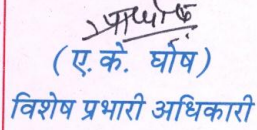 (ए. के. घोष)
विशेष प्रभारी अधिकारी